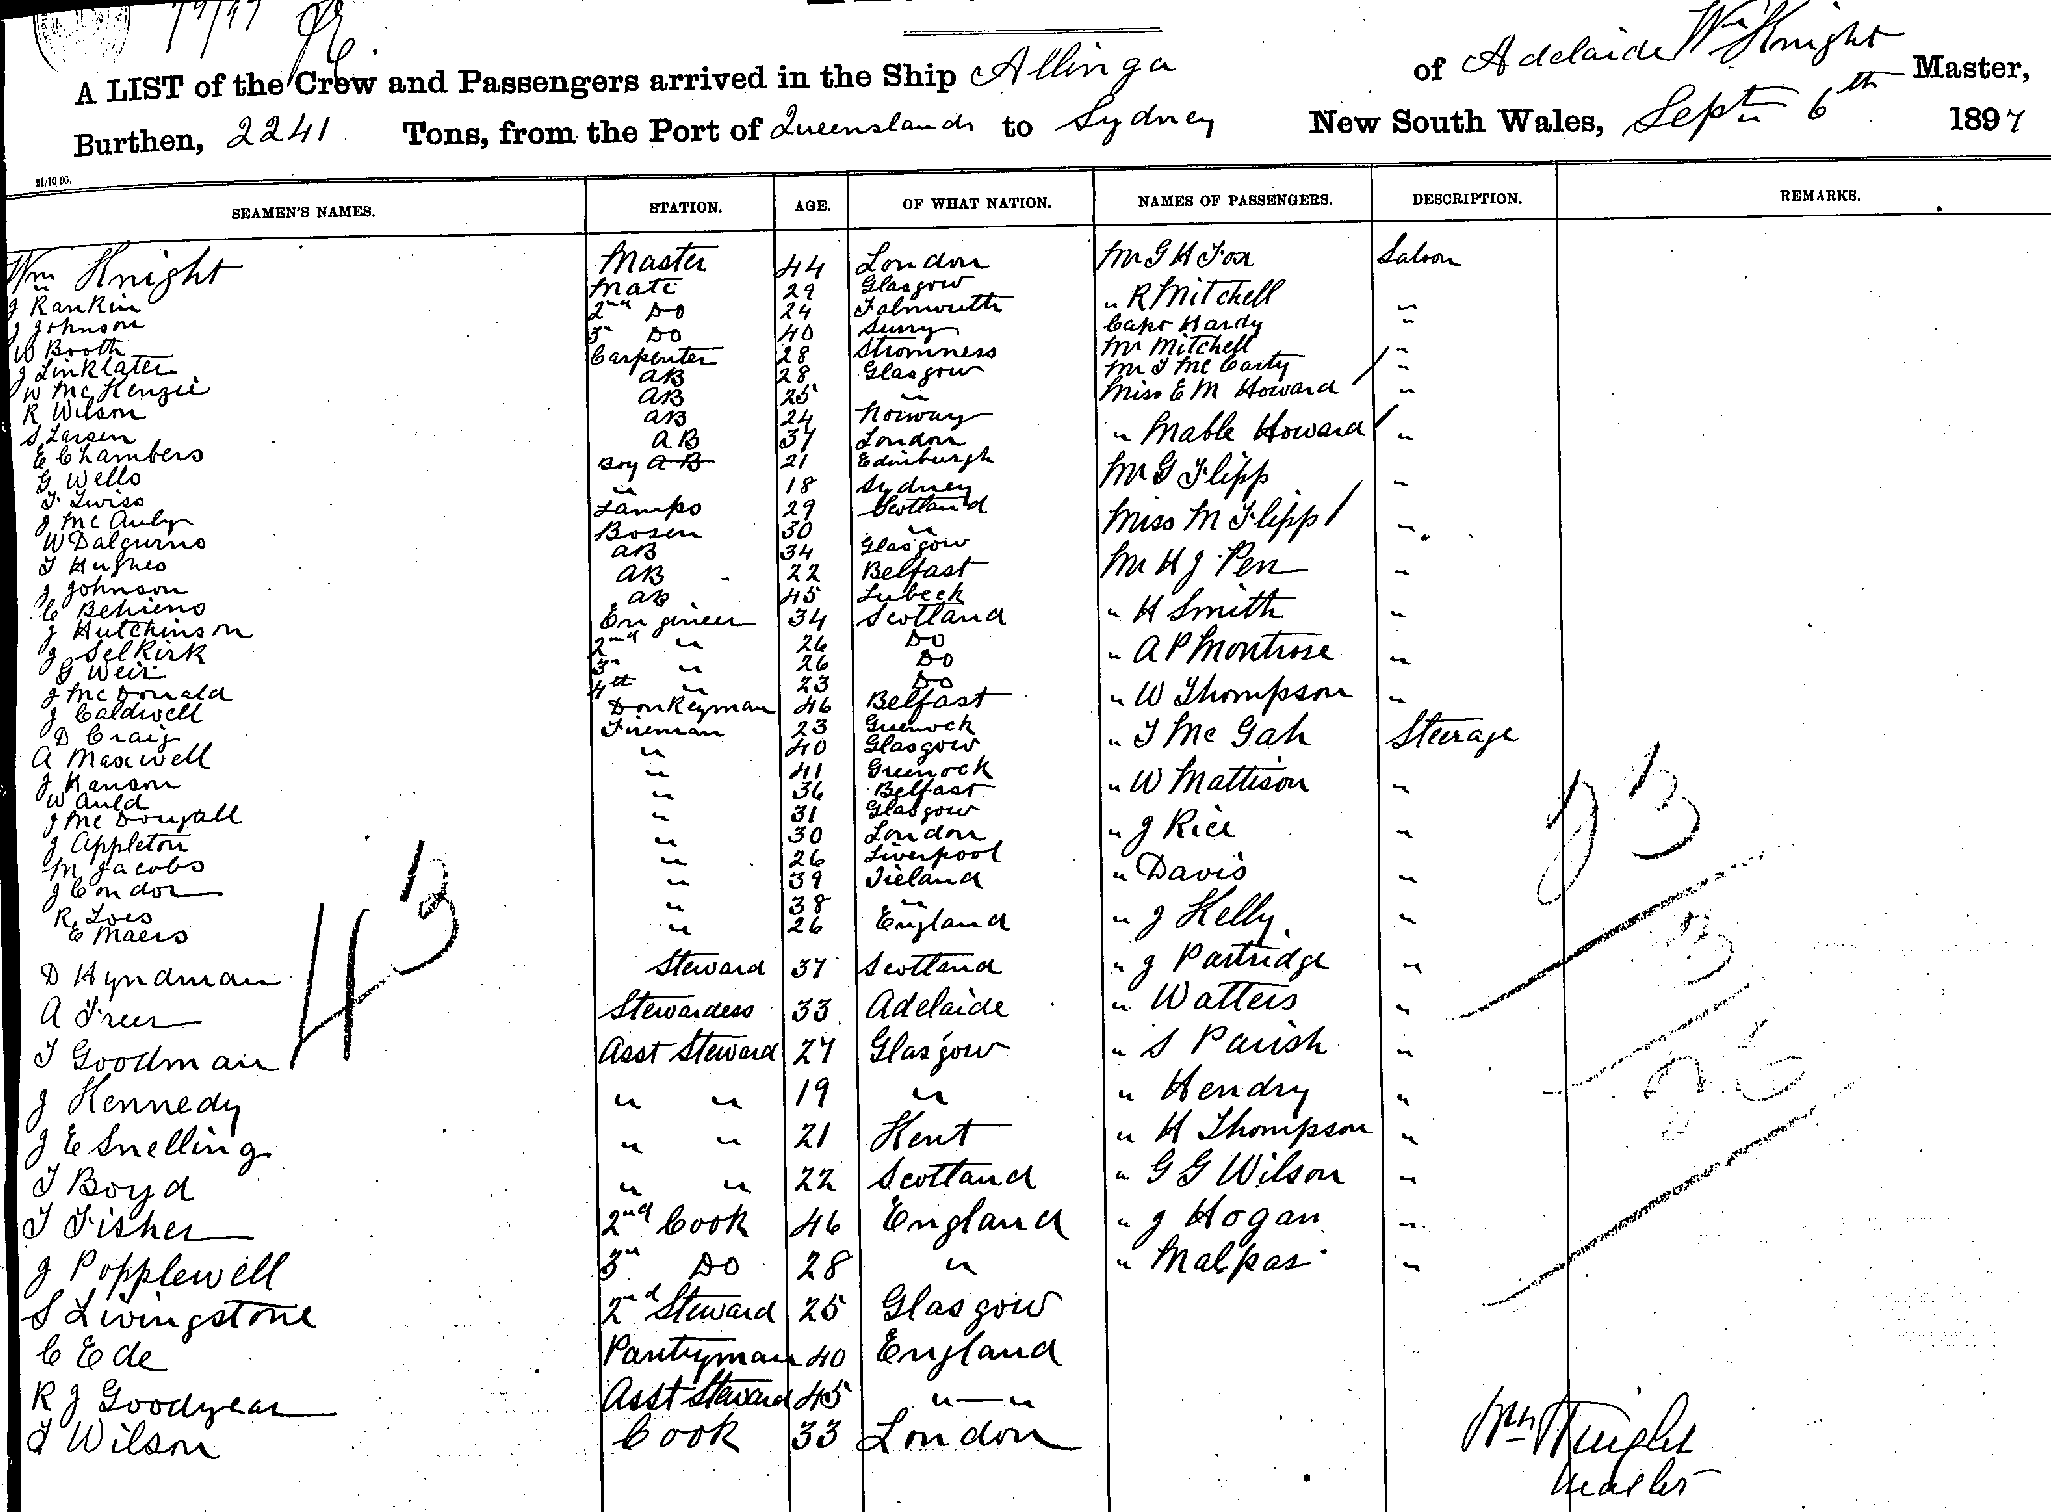 A LIST of the Crew and Passengers arrived in the Ship Allinga of Adelaide Wm Knight Master,
Burthen, 2241 Tons, from the Port of Queensland to Sydney New South Wales, Septr 6th 1897
SEAMEN'S NAMES. STATION. AGE. OF WHAT NATION. NAMES OF PASSENGERS. DESCRIPTION. REMARKS.
Wm Knight Master 44 London Mr G H Fox Saloon
J Rankin Mate 29 Glasgow " R Mitchell "
J Johnson 2nd Do 24 Falmouth Capt Hardy "
W Booth 3rd Do 40 Surry Mr Mitchell "
J Linklater Carpenter 28 Stromness Mr T McCarty "
W McKenzie AB 28 Glasgow Miss E M Howard "
R Wilson AB 25 " " Mable Howard "
S Larsen AB 24 Norway Mr G Flipp "
E Chambers AB 37 London Miss M Flipp "
G Wells Boy AB 21 Edinburgh Mr H J Pen "
T Twiss " 18 Sydney " H Smith "
J McAuly Lamps 29 Scotland " A P Montrose "
W Dalgurno Bosen 30 " " W Thompson "
T Hughes AB 34 Glasgow " T McGah Steerage
J Johnson AB 22 Belfast " W Mattison "
C Behrens AB 45 Lubeck " J Rice "
J Hutchinson Engineer 34 Scotland " Davis "
J Selkirk 2nd " 26 Do " J Kelly "
G Weir 3rd " 26 Do " J Partridge "
J McDonald 4th " 23 Do " Watters "
J Caldwell Donkeyman 46 Belfast " S Parish "
D Craig Fireman 23 Greenock " Hendry "
A Maxwell " 40 Glasgow " H Thompson "
J Ranson " 41 Greenock " G G Wilson "
W Auld " 36 Belfast " J Hogan "
J McDougall " 31 Glasgow " Malpas "
J Appleton " 30 London
M Jacobs " 26 Liverpool
J Condon " 39 Ireland
R " 38 "
E Maers " 26 England
D Hyndman Steward 37 Scotland
A Freer Stewardess 33 Adelaide
T Goodman Asst Steward 27 Glasgow
J Kennedy " " 19 "
J E Snelling " " 21 Kent
T Boyd " " 22 Scotland
T Fisher 2nd Cook 46 England
J Popplewell 3rd Do 28 "
S Livingstone 2nd Steward 25 Glasgow
C Ede Pantryman 40 England
R J Goodyear Asst Steward 45 " — "
T Wilson Cook 33 London
43
23
3
26
Wm Knight
Master